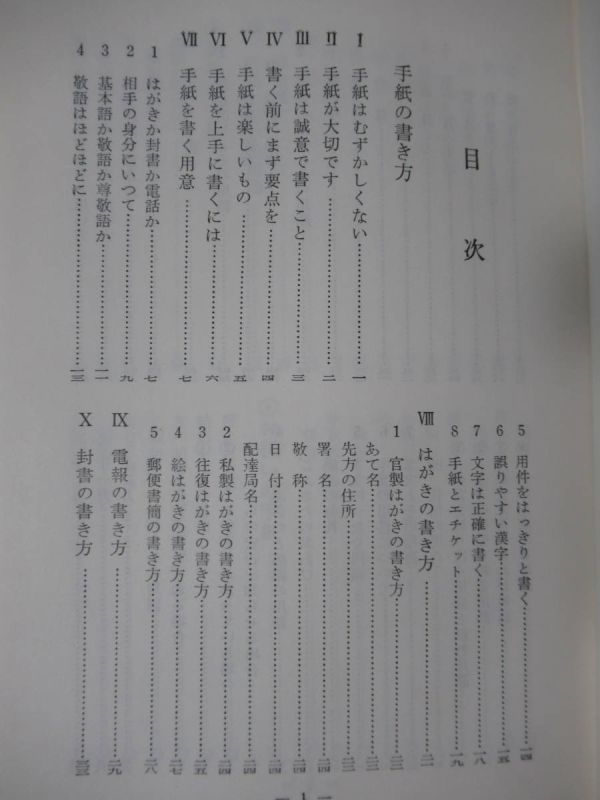 目次
手紙の書き方
Ⅰ 手紙はむずかしくない…………一
Ⅱ 手紙が大切です…………二
Ⅲ 手紙は誠意で書くこと…………三
Ⅳ 書く前にまず要点を…………四
Ⅴ 手紙は楽しいもの…………五
Ⅵ 手紙を上手に書くには…………六
Ⅶ 手紙を書く用意…………七
1 はがきか封書か電話か…………七
2 相手の身分にいつて…………九
3 基本語か敬語か尊敬語か…………一一
4 敬語はほどほどに…………一三
5 用件をはっきりと書く…………一四
6 誤りやすい漢字…………一五
7 文字は正確に書く…………一八
8 手紙とエチケット…………一九
Ⅷ はがきの書き方…………二一
1 官製はがきの書き方…………二三
あて名…………二三
先方の住所…………二三
署名…………二四
敬称…………二四
日付…………二四
配達局名…………二四
2 私製はがきの書き方…………二四
3 往復はがきの書き方…………二五
4 絵はがきの書き方…………二七
5 郵便書簡の書き方…………二八
Ⅸ 電報の書き方…………二九
Ⅹ 封書の書き方…………三三
— 1 —